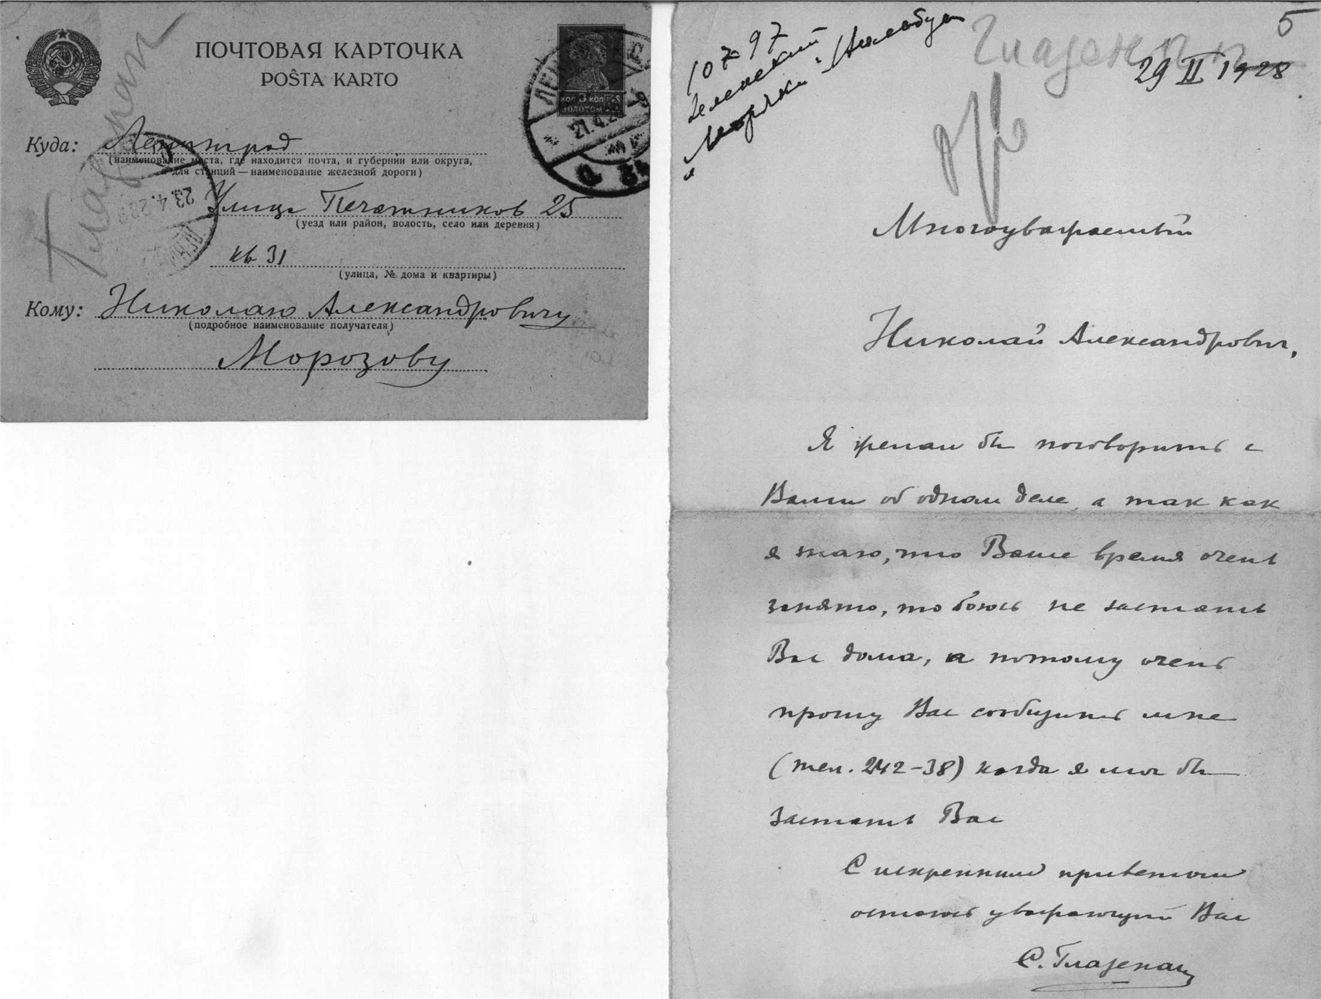 ПОЧТОВАЯ КАРТОЧКА
POŜTA KARTO
Глазенап
Куда: Ленинград
(наименование места, где находится почта, и губернии или округа,
а для станций — наименование железной дороги)
Улица Печатников 25
(уезд или район, волость, село или деревня)
кв 31
(улица, № дома и квартиры)
Кому: Николаю Александровичу
(подробное наименование получателя)
Морозову
5
10797
Зеленский
Глазенап
29 II 1928
Многоуважаемый
Николай Александрович,
Я желал бы поговорить с
Вами об одном деле, а так как
я знаю, что Ваше время очень
занято, то боюсь не застать
Вас дома, а потому очень
прошу Вас сообщить мне
(тел. 242-38) когда я мог бы
застать Вас
С искренним приветом
остаюсь уважающий Вас
С. Глазенап